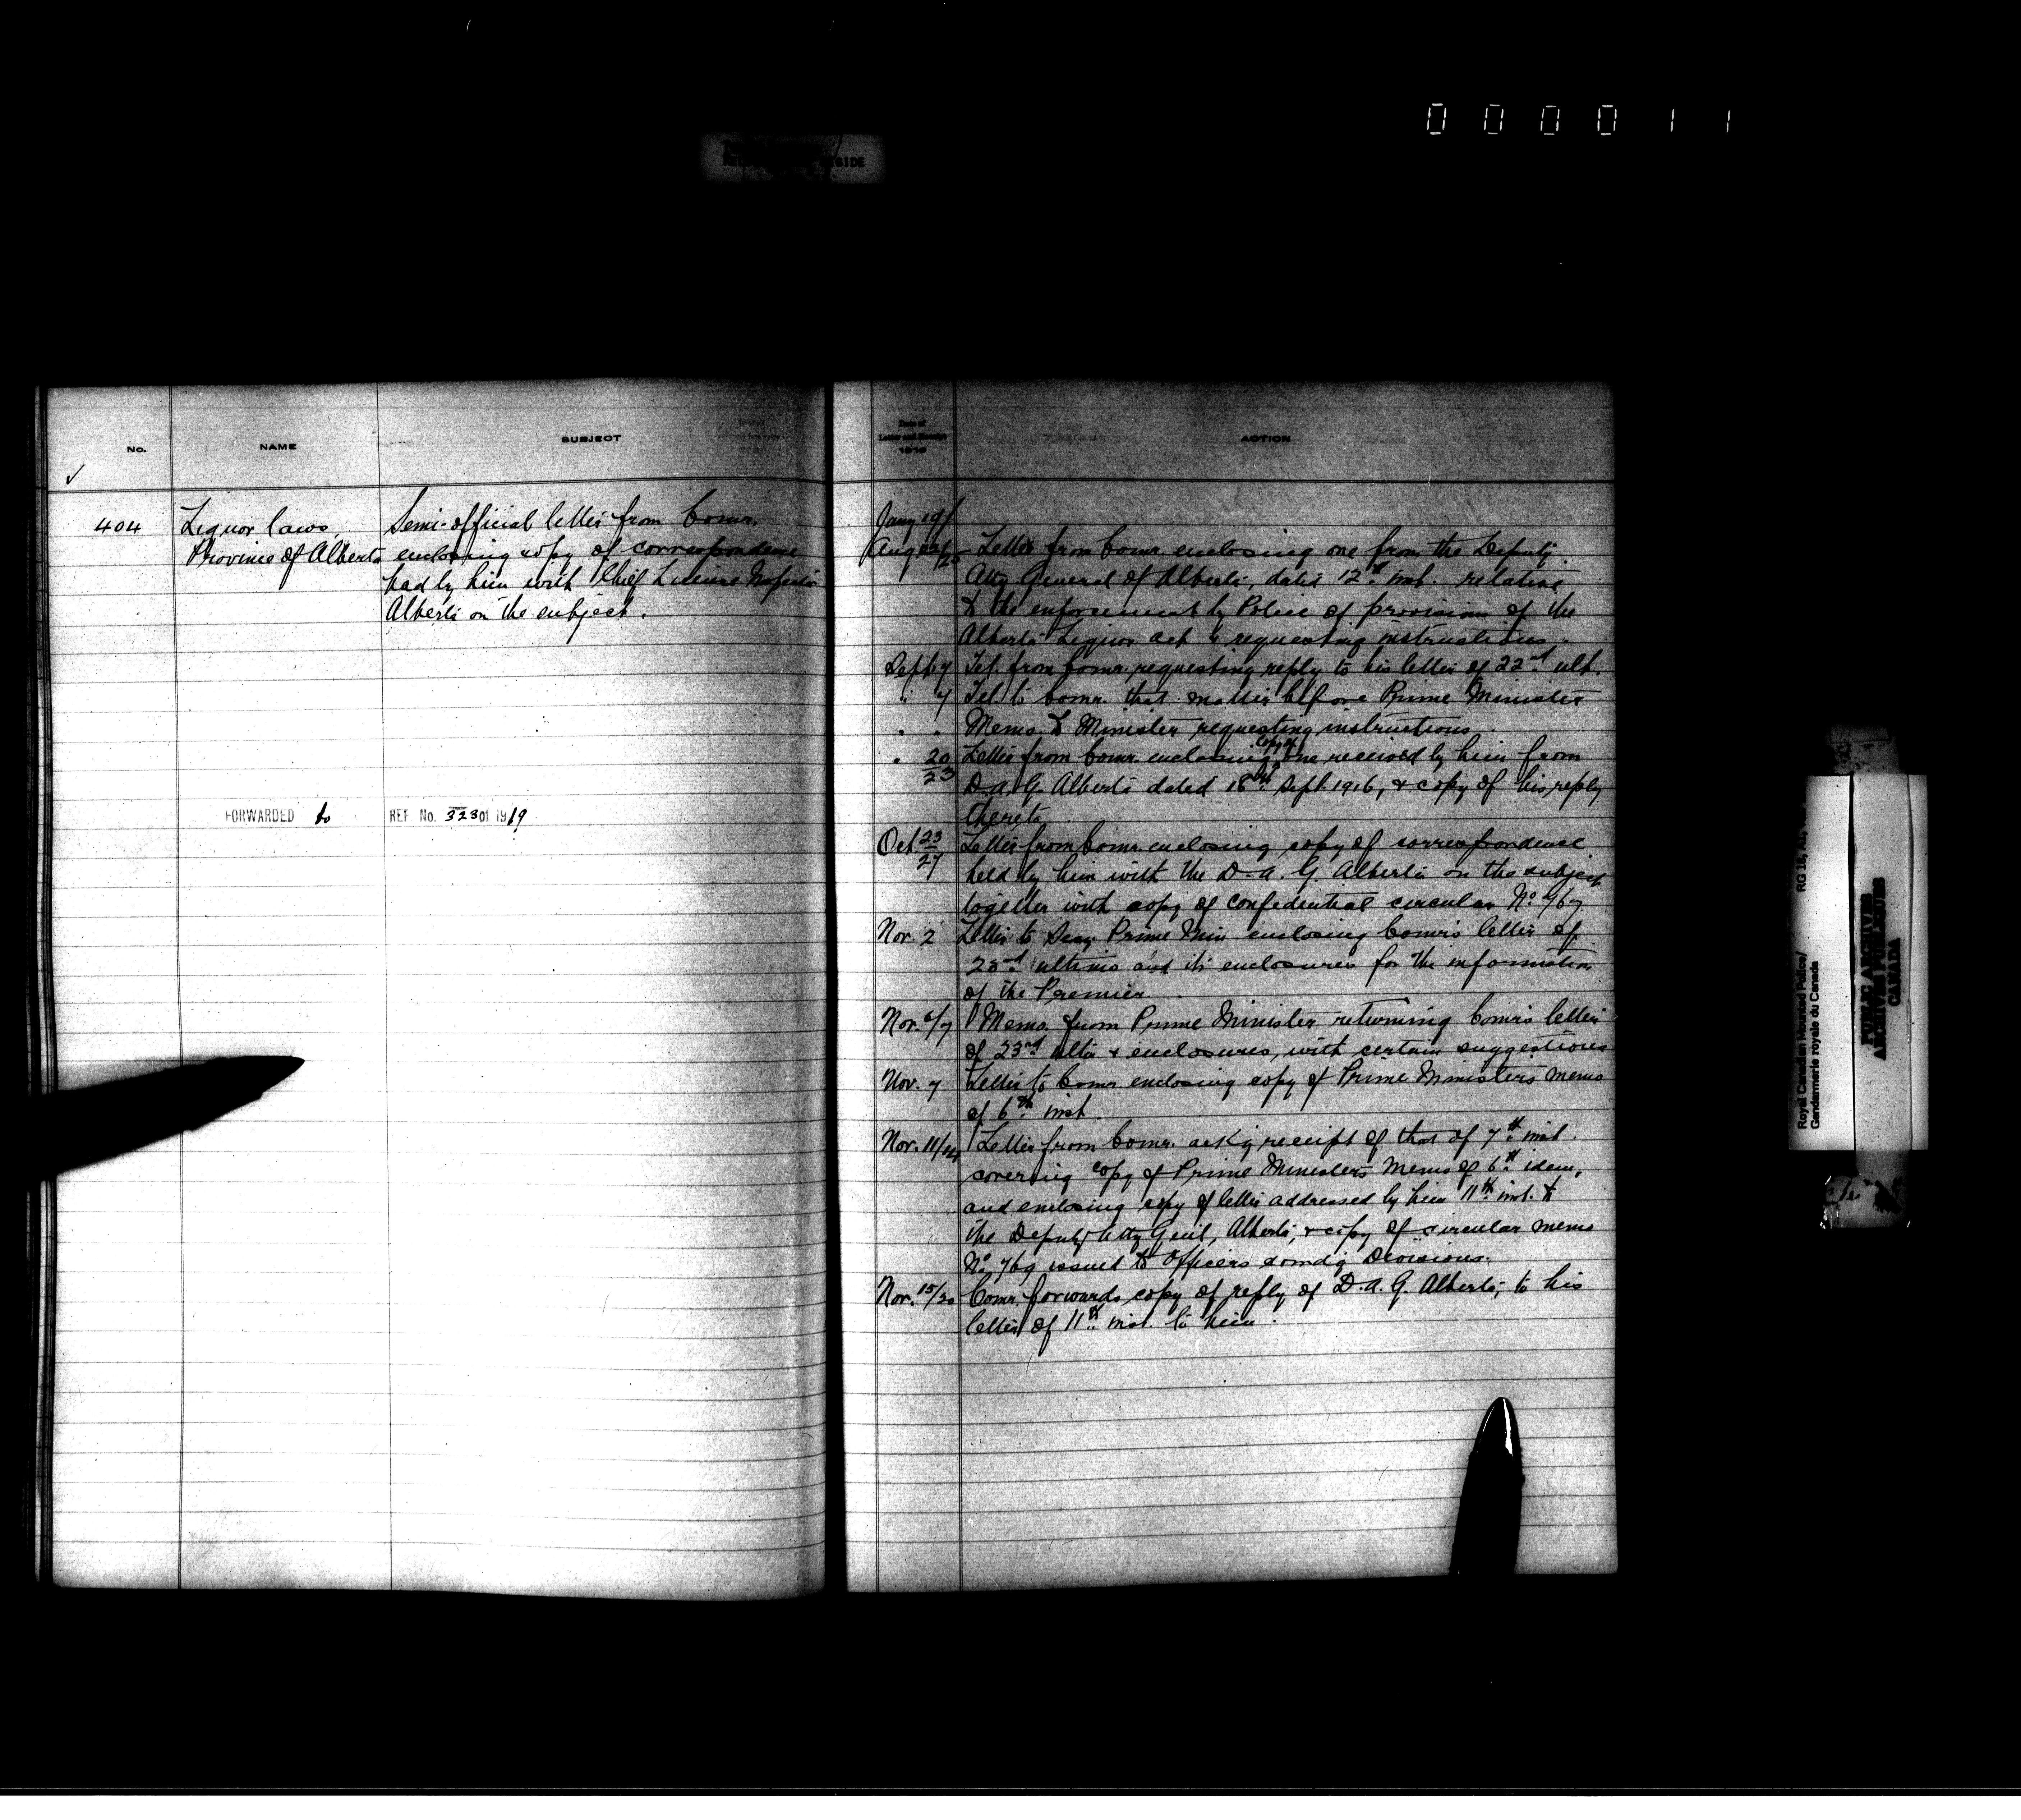 000011
No.
NAME
SUBJECT
404
Liquor laws
Province of Alberta
Semi-official letter from Comr.
enclosing copy of correspondence
had by him with Chief License Inspector
Alberta on the subject.
FORWARDED to
REF No. 323 of 1919
Date of
Letter and Receipt
1916
ACTION
Jany 19/
Aug 22/25 Letter from Comr. enclosing one from the Deputy
Atty General of Alberta, dated 12th inst. relative
to the enforcement by Police of provision of the
Alberta Liquor act & requesting instructions.
Sept 7 Tel. from Comr. requesting reply to his letter of 22nd ult.
" 7 Tel. to Comr. that matter before Prime Minister
" " Memo. to Minister requesting instructions.
" 20/23 Letter from Comr. enclosing copy of one received by him from
D.A.G. Alberta dated 18th Sept. 1916, & copy of his reply
thereto
Oct 23/27 Letter from Comr. enclosing copy of correspondence
held by him with the D.A.G. Alberta on the subject
together with copy of confidential circular No 767
Nov. 2 Letter to Secy Prime Min enclosing Comr's letter of
23rd ultimo and its enclosures for the information
of the Premier.
Nov. 6/7 Memo. from Prime Minister returning Comr's letter
of 23rd ulto & enclosures, with certain suggestions
Nov. 7 Letter to Comr enclosing copy of Prime Ministers memo
of 6th inst.
Nov. 11/14 Letter from Comr. ackg receipt of that of 7th inst.
covering copy of Prime Ministers Memo of 6th idem,
and enclosing copy of letter addressed by him 11th inst. to
the Deputy Atty Genl, Alberta, & copy of circular memo
No 769 issued to Officers comdg Divisions.
Nov. 15/20 Comr. forwards copy of reply of D.A.G. Alberta, to his
letter of 11th inst. to him.
Royal Canadian Mounted Police/
Gendarmerie royale du Canada
RG 18,
PUBLIC ARCHIVES
ARCHIVES PUBLIQUES
CANADA